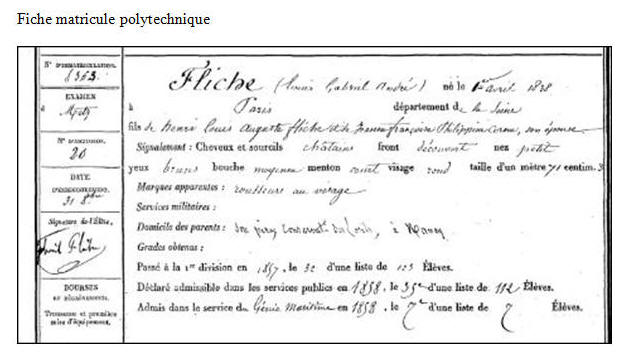 Fiche matricule polytechnique
N° D'IMMATRICULATION.
8353
EXAMEN
à Metz
20
DATE
31 8bre
Signature de l'Élève.
BOURSES
Trousseau et première
mise d'équipement.
Fliche (Louis Gabriel André) né le 1er avril 1838
à Paris département de la Seine
fils de Henri Louis Auguste Fliche et de Françoise Philippine son épouse
Signalement : Cheveux et sourcils châtains front découvert nez petit
yeux bruns bouche moyenne menton court visage rond taille d'un mètre 71 centim. 3
Marques apparentes : rousseurs au visage
Services militaires :
Domicile des parents : Son père, à Nancy
Grades obtenus :
Passé à la 1re division en 1857, le 32 d'une liste de 123 Élèves.
Déclaré admissible dans les services publics en 1858, le 35e d'une liste de 112 Élèves.
Admis dans le service du Génie Maritime en 1858, le 7e d'une liste de 7 Élèves.